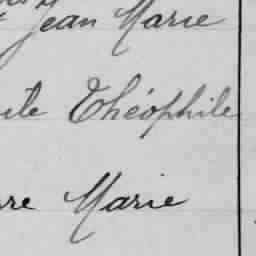 Jean Marie
Théophile
Marie